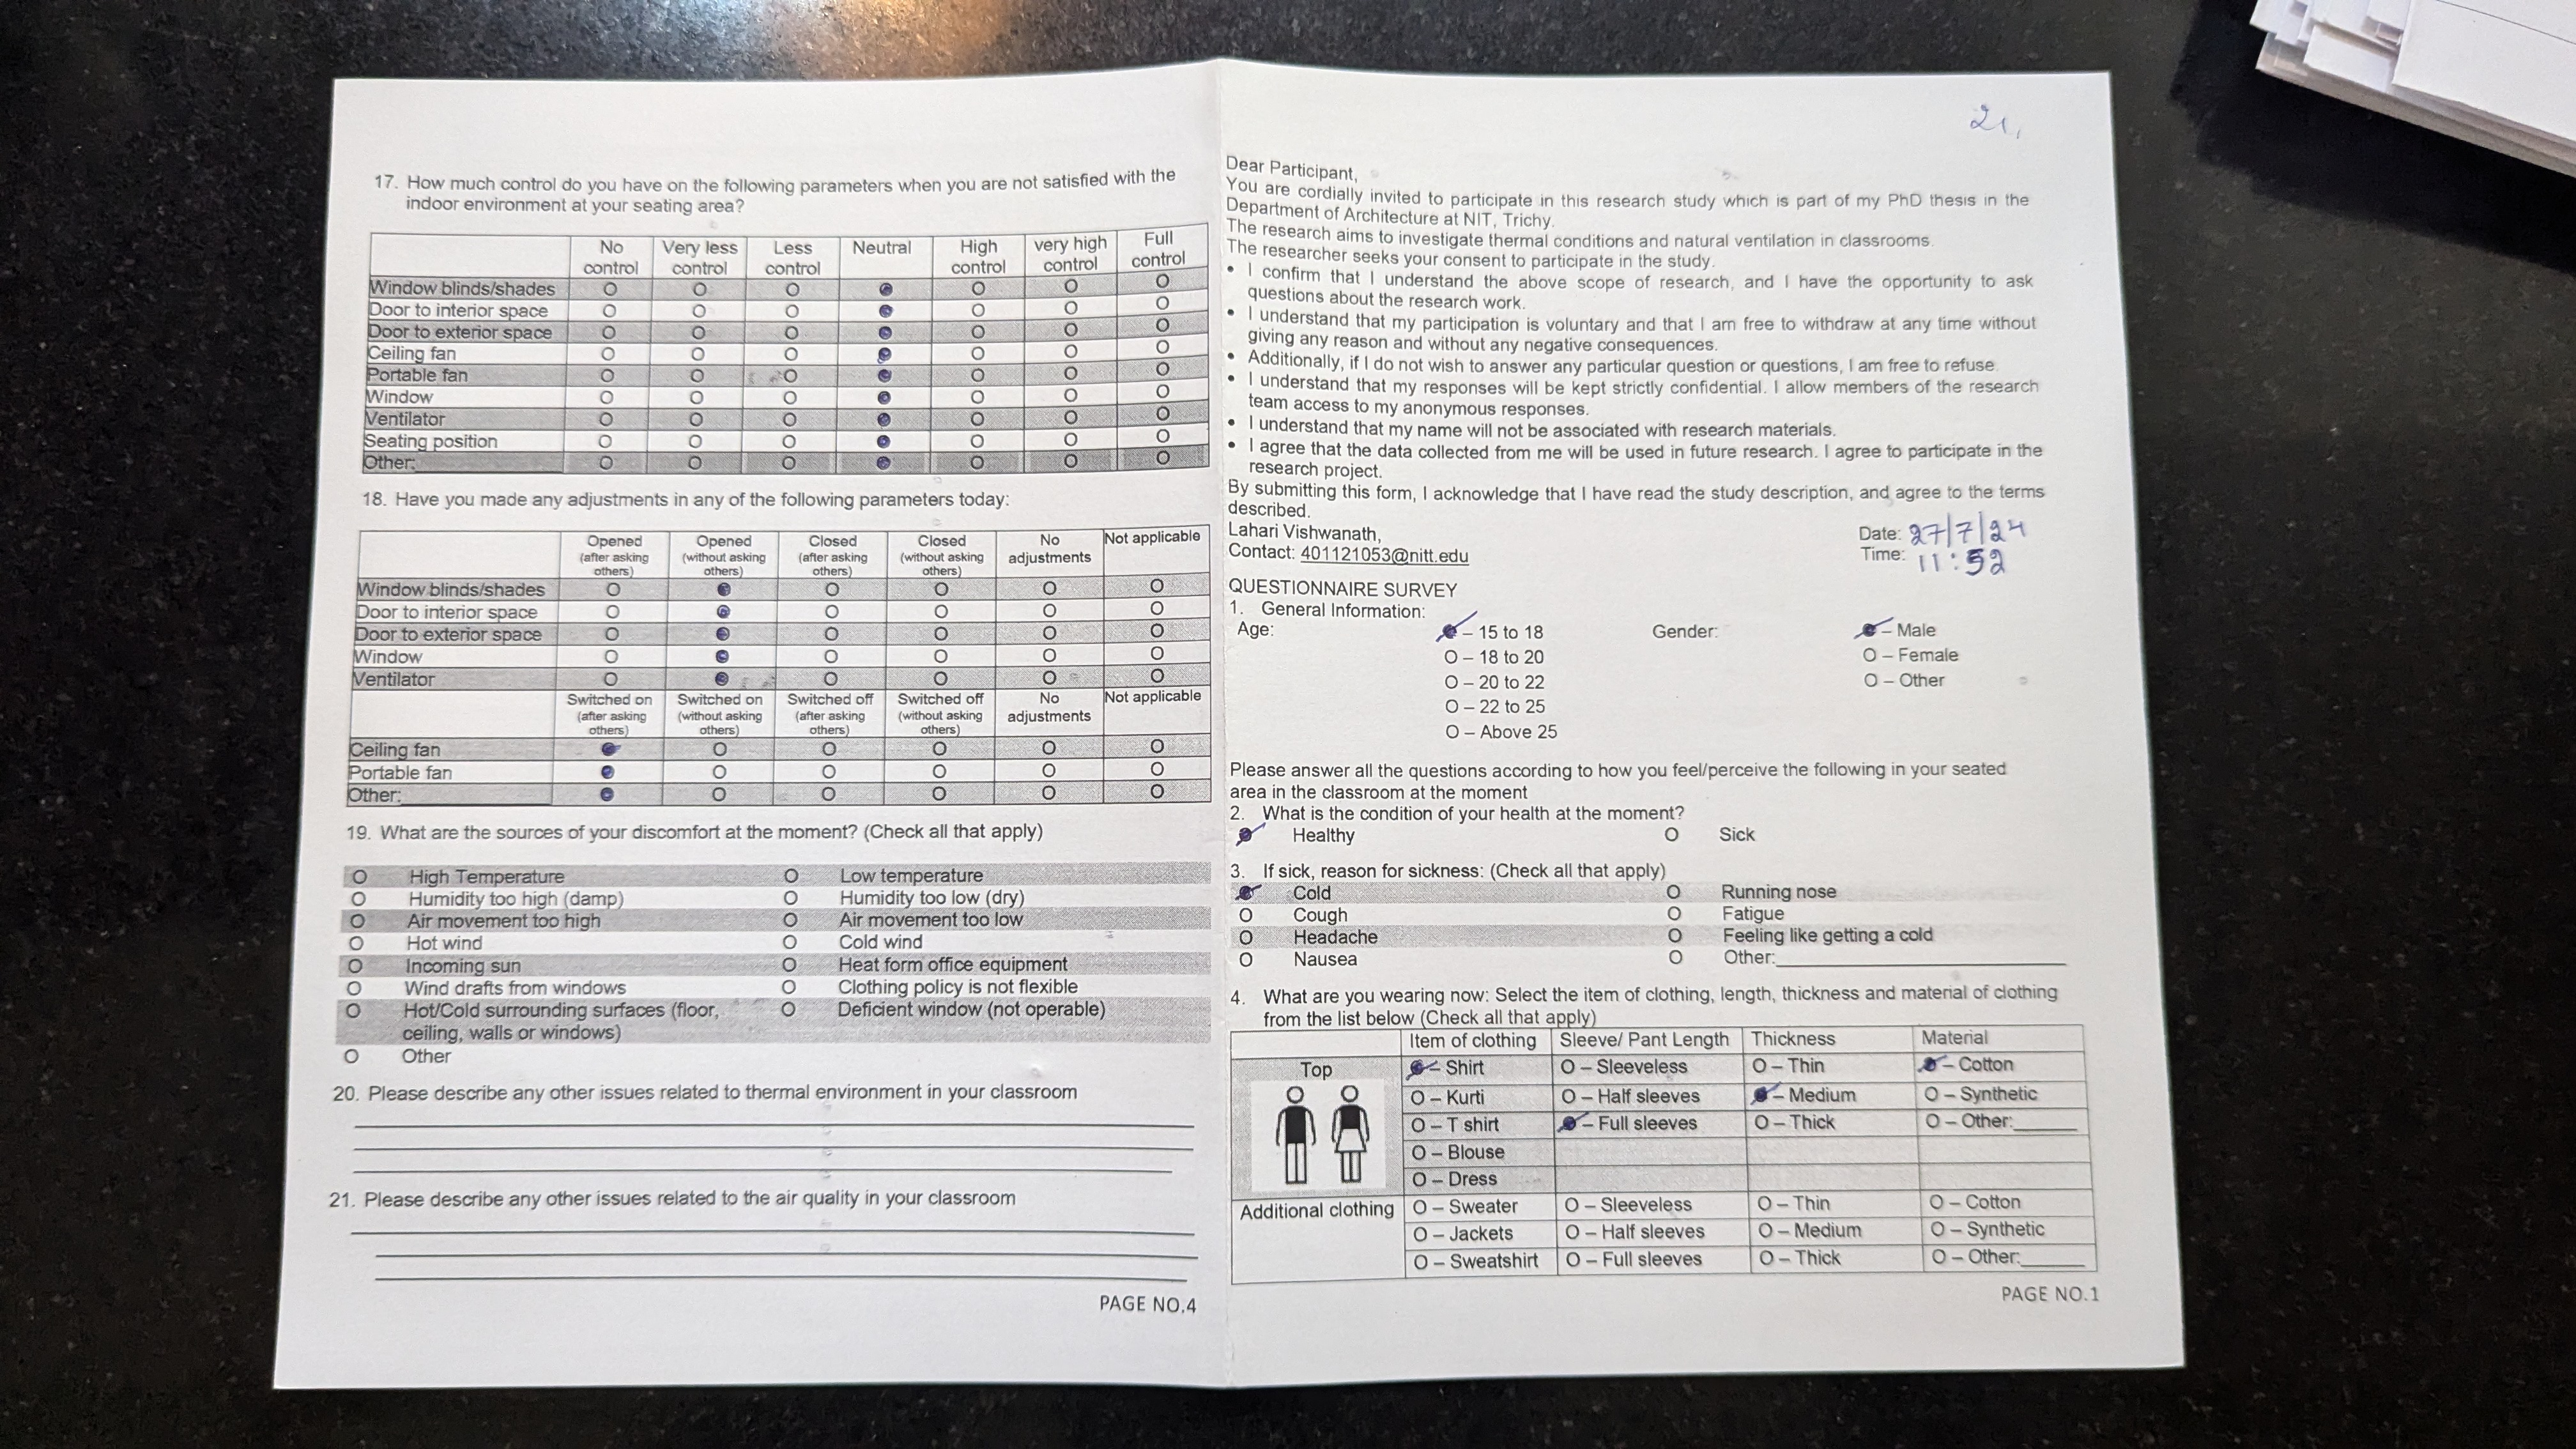 17. How much control do you have on the following parameters when you are not satisfied with the
indoor environment at your seating area?
No control Very less control Less control Neutral High control very high control Full control
Window blinds/shades O O O ● O O O
Door to interior space O O O ● O O O
Door to exterior space O O O ● O O O
Ceiling fan O O O ● O O O
Portable fan O O O ● O O O
Window O O O ● O O O
Ventilator O O O ● O O O
Seating position O O O ● O O O
Other: O O O ● O O O
18. Have you made any adjustments in any of the following parameters today:
Opened (after asking others) Opened (without asking others) Closed (after asking others) Closed (without asking others) No adjustments Not applicable
Window blinds/shades O ● O O O O
Door to interior space O ● O O O O
Door to exterior space O ● O O O O
Window O ● O O O O
Ventilator O ● O O O O
Switched on (after asking others) Switched on (without asking others) Switched off (after asking others) Switched off (without asking others) No adjustments Not applicable
Ceiling fan ● O O O O O
Portable fan ● O O O O O
Other: ● O O O O O
19. What are the sources of your discomfort at the moment? (Check all that apply)
O High Temperature O Low temperature
O Humidity too high (damp) O Humidity too low (dry)
O Air movement too high O Air movement too low
O Hot wind O Cold wind
O Incoming sun O Heat form office equipment
O Wind drafts from windows O Clothing policy is not flexible
O Hot/Cold surrounding surfaces (floor, O Deficient window (not operable)
ceiling, walls or windows)
O Other
20. Please describe any other issues related to thermal environment in your classroom
21. Please describe any other issues related to the air quality in your classroom
PAGE NO.4
21,
Dear Participant,
You are cordially invited to participate in this research study which is part of my PhD thesis in the
Department of Architecture at NIT, Trichy.
The research aims to investigate thermal conditions and natural ventilation in classrooms.
The researcher seeks your consent to participate in the study.
• I confirm that I understand the above scope of research, and I have the opportunity to ask
questions about the research work.
• I understand that my participation is voluntary and that I am free to withdraw at any time without
giving any reason and without any negative consequences.
• Additionally, if I do not wish to answer any particular question or questions, I am free to refuse.
• I understand that my responses will be kept strictly confidential. I allow members of the research
team access to my anonymous responses.
• I understand that my name will not be associated with research materials.
• I agree that the data collected from me will be used in future research. I agree to participate in the
research project.
By submitting this form, I acknowledge that I have read the study description, and agree to the terms
described.
Lahari Vishwanath, Date: 27/7/24
Contact: 401121053@nitt.edu Time: 11:52
QUESTIONNAIRE SURVEY
1. General Information:
Age: ● – 15 to 18 Gender: ● – Male
O – 18 to 20 O – Female
O – 20 to 22 O – Other
O – 22 to 25
O – Above 25
Please answer all the questions according to how you feel/perceive the following in your seated
area in the classroom at the moment
2. What is the condition of your health at the moment?
● Healthy O Sick
3. If sick, reason for sickness: (Check all that apply)
● Cold O Running nose
O Cough O Fatigue
O Headache O Feeling like getting a cold
O Nausea O Other:
4. What are you wearing now: Select the item of clothing, length, thickness and material of clothing
from the list below (Check all that apply)
Item of clothing Sleeve/ Pant Length Thickness Material
Top ● – Shirt O – Sleeveless O – Thin ● – Cotton
O – Kurti O – Half sleeves ● – Medium O – Synthetic
O – T shirt ● – Full sleeves O – Thick O – Other:
O – Blouse
O – Dress
Additional clothing O – Sweater O – Sleeveless O – Thin O – Cotton
O – Jackets O – Half sleeves O – Medium O – Synthetic
O – Sweatshirt O – Full sleeves O – Thick O – Other:
PAGE NO.1